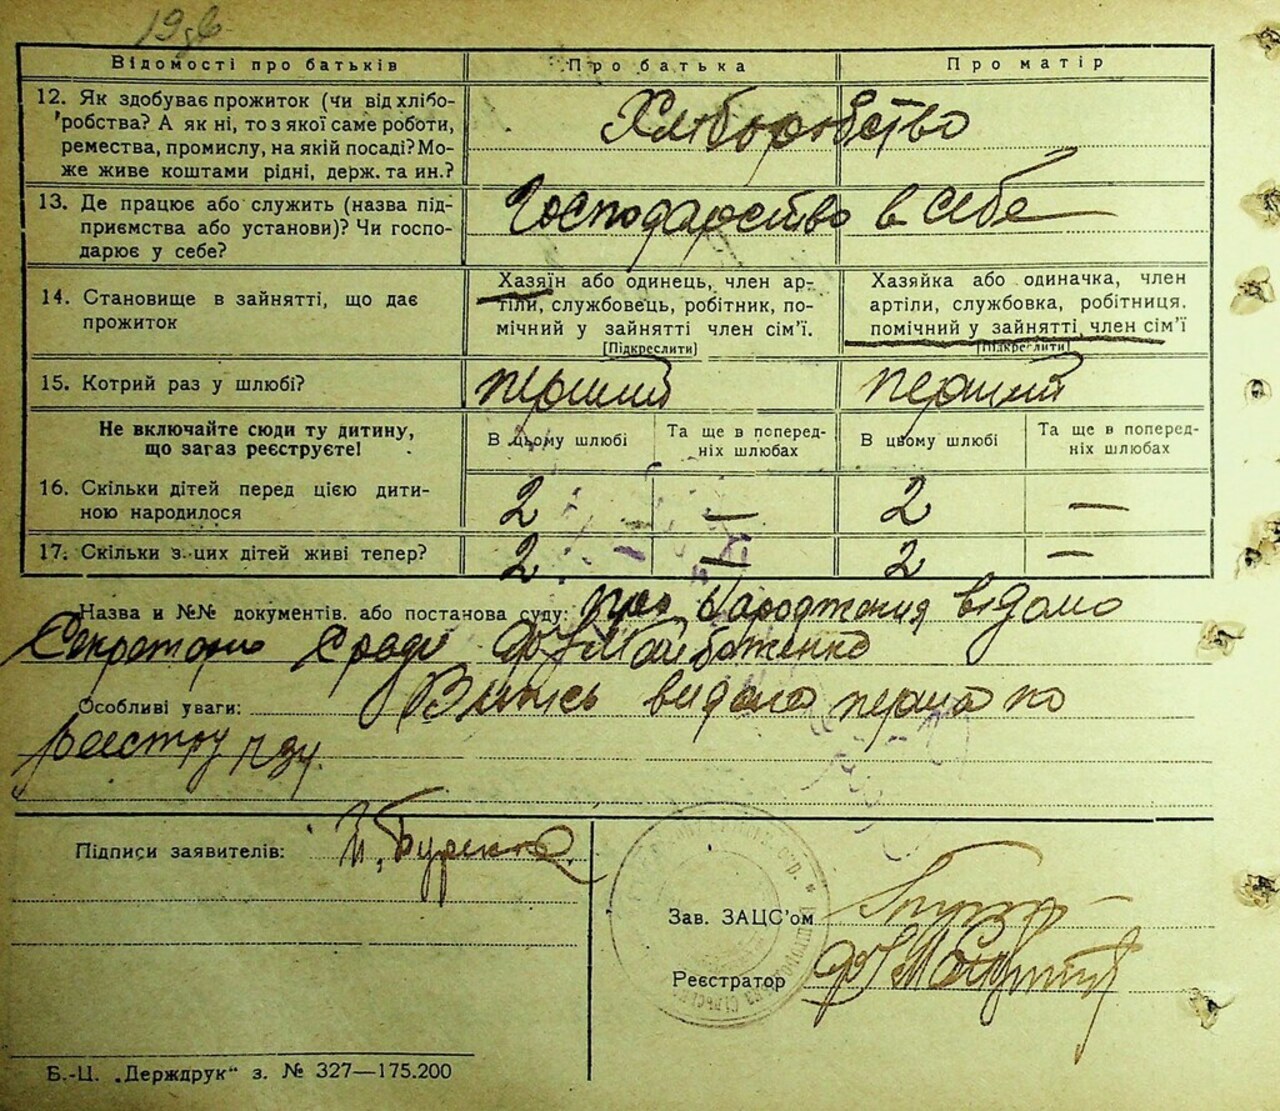 Відомості про батьків
Про батька
Про матір
12. Як здобуває прожиток (чи від хлібо-
робства? А як ні, то з якої саме роботи,
ремества, промислу, на якій посаді? Мо-
же живе коштами рідні, держ. та ин.?
Хліборобство
13. Де працює або служить (назва під-
приємства або установи)? Чи госпо-
дарює у себе?
Господарство в себе
14. Становище в зайнятті, що дає
прожиток
Хазяїн або одинець, член ар-
тіли, службовець, робітник, по-
мічний у зайнятті член сім'ї.
[Підкреслити]
Хазяйка або одиначка, член
артіли, службовка, робітниця.
помічний у зайнятті, член сім'ї
[Підкреслити]
15. Котрий раз у шлюбі?
перший
перший
Не включайте сюди ту дитину,
що загаз реєструєте!
В цьому шлюбі
Та ще в поперед-
ніх шлюбах
В цьому шлюбі
Та ще в поперед-
ніх шлюбах
16. Скільки дітей перед цією дити-
ною народилося
2
—
2
—
17. Скільки з цих дітей живі тепер?
2
—
2
—
Назва и №№ документів. або постанова суду: про народження відомо
Секретарю Сради
Особливі уваги: Випись видана перша по
реєстру
Підписи заявителів:
Зав. ЗАЦС'ом
Реєстратор
Б.-Ц. „Держдрук“ з. № 327—175.200